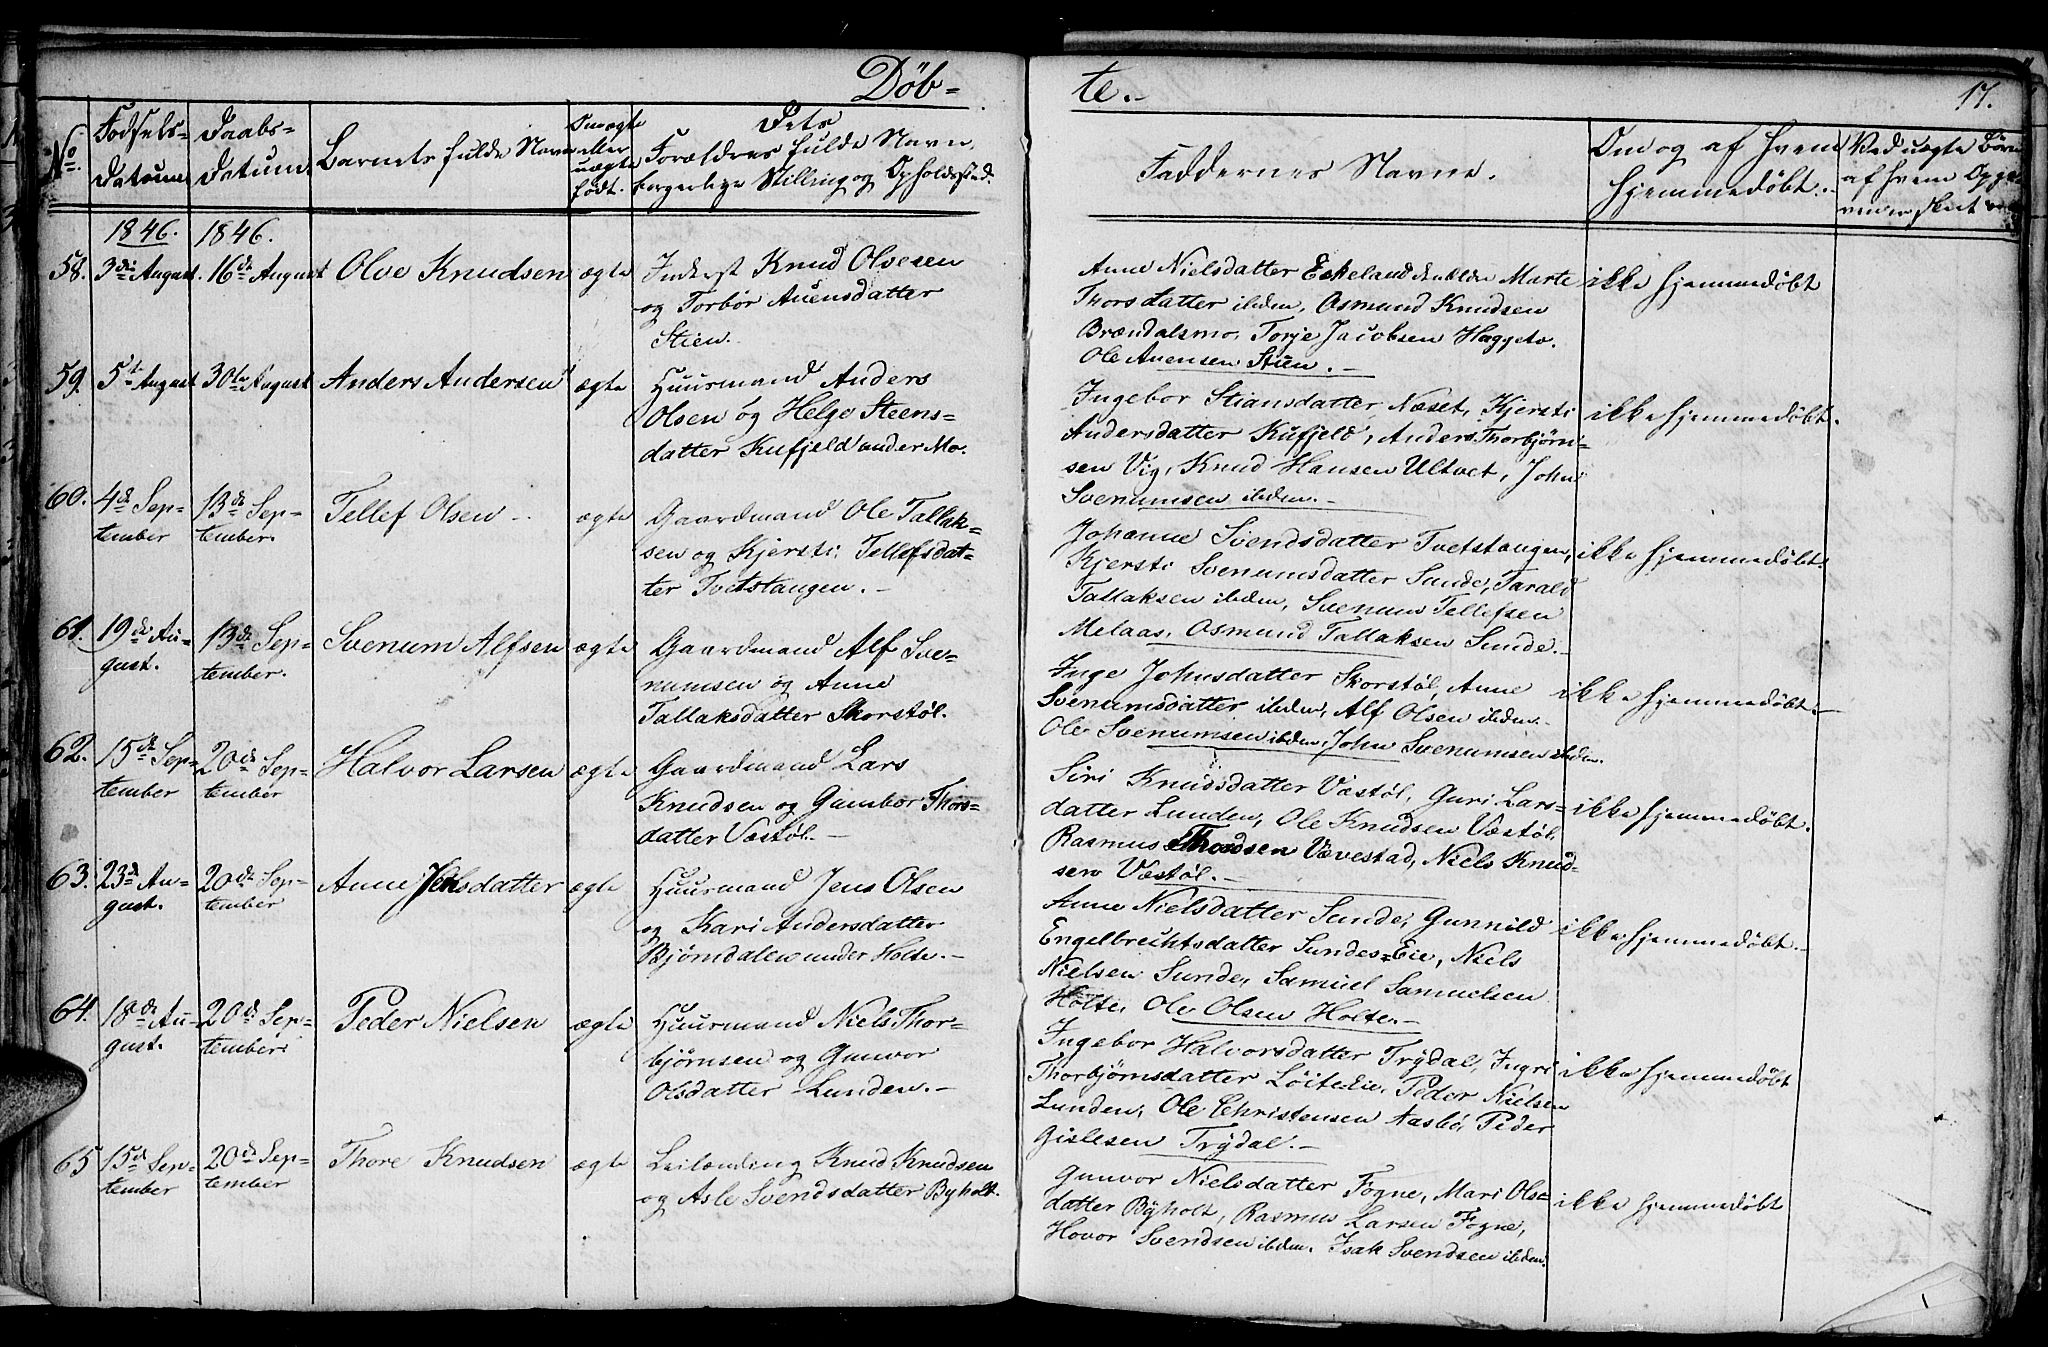 Døb-
te.-
17.
No
Fødsels-
datum
Daabs-
datum.
Barnets fulde Navn
Om ægte
eller
uægte
født.
Dets
Forældres fulde Navn,
borgerlige Stilling og Opholdssted.
Faddernes Navne.
Om og af hvem
hjemmedøbt.
Ved uægte Børn
af hvem Opgi-
ven er skeet
1846.
1846.
58.
3die August.
16de August
Olve Knudsen
ægte
Inderst Knud Olvesen
og Torbør Auensdatter
Stien.
Anne Nielsdatter Eskeland Marte
Thorsdatter ibidem, Osmund Knudsen
Brændalsmo, Torje Jacobsen Heggeto.
Ole Auensen Stien.-
ikke hjemmedøbt
59.
5te August
30te August
Anders Andersen
ægte
Huusmand Anders
Olsen og Helge Steens=
datter Kufjeld under Mo.
Ingebor Stiansdatter Næset, Kjersti
Andersdatter Kufjeld, Anders Thorbjørn-
sen Vig, Knud Hansen Ultvet, John
Svenumsen ibidem.-
ikke hjemmedøbt.
60.
4de Sep-
tember
13de Sep-
tember.
Tellef Olsen -
ægte
Gaardmand Ole Tallak-
sen og Kjersti Tellefsdat-
ter Tvetstangen.-
Johanne Svendsdatter Tvetstangen,
Kjersti Svenumsdatter Sunde, Tarald
Tallaksen ibidem, Svenum Tellefsen
Melaas, Osmund Tallaksen Sunde.-
ikke hjemmedøbt
61.
19de Au-
gust.
13de Sep-
tember.
Svenum Alfsen
ægte
Gaardmand Alf Sve-
numsen og Anne
Tallaksdatter Skorstøl.
Inge Johnsdatter Skorstøl, Anne
Svenumsdatter ibidem, Alf Olsen ibidem.
Ole Svenumsen ibidem, John Svenumsen ibidem.
ikke hjemmedøbt.-
62.
15de Sep-
tember
20de Sep-
tember
Halvor Larsen
ægte
Gaardmand Lars
Knudsen og Gumbor Thors=
datter Væstøl.-
Siri Knudsdatter Væstøl, Guri Lars=
datter Lunden, Ole Knudsen Væstøl,
Rasmus Thordsen Vævestad, Niels Knud-
sen Væstøl.-
ikke hjemmedøbt.
63.
23de Au-
gust.
20de Sep-
tember
Anne Jensdatter
ægte
Huusmand Jens Olsen
og Kari Andersdatter
Bjørndalen under Holte.-
Anne Nielsdatter Sunde, Gunnild
Engelbrechtsdatter Sundes=Eie, Niels
Nielsen Sunde, Samuel Samuelsen
Holte, Ole Olsen Holte.-
ikke hjemmedøbt.-
64.
18de Au-
gust.
20de Sep-
tember
Peder Nielsen
ægte
Huusmand Niels Thor-
bjørnsen og Gunvor
Olsdatter Lunden.-
Ingebor Halvorsdatter Trydal, Ingri
Thorbjørnsdatter Løite Eie, Peder Nielsen
Lunden, Ole Christensen Aasbø, Peder
Gislesen Trydal.-
ikke hjemmedøbt
65
15de Sep-
tember
20de Sep-
tember
Thore Knudsen
ægte
Leilænding Knud Knudsen
og Asle Svendsdatter Byholt.
Gunvor Nielsdatter Fogne, Mari Ols=
datter Byholt, Rasmus Larsen Fogne,
Hovor Svendsen ibidem. Isak Svendsen ibidem.
ikke hjemmedøbt